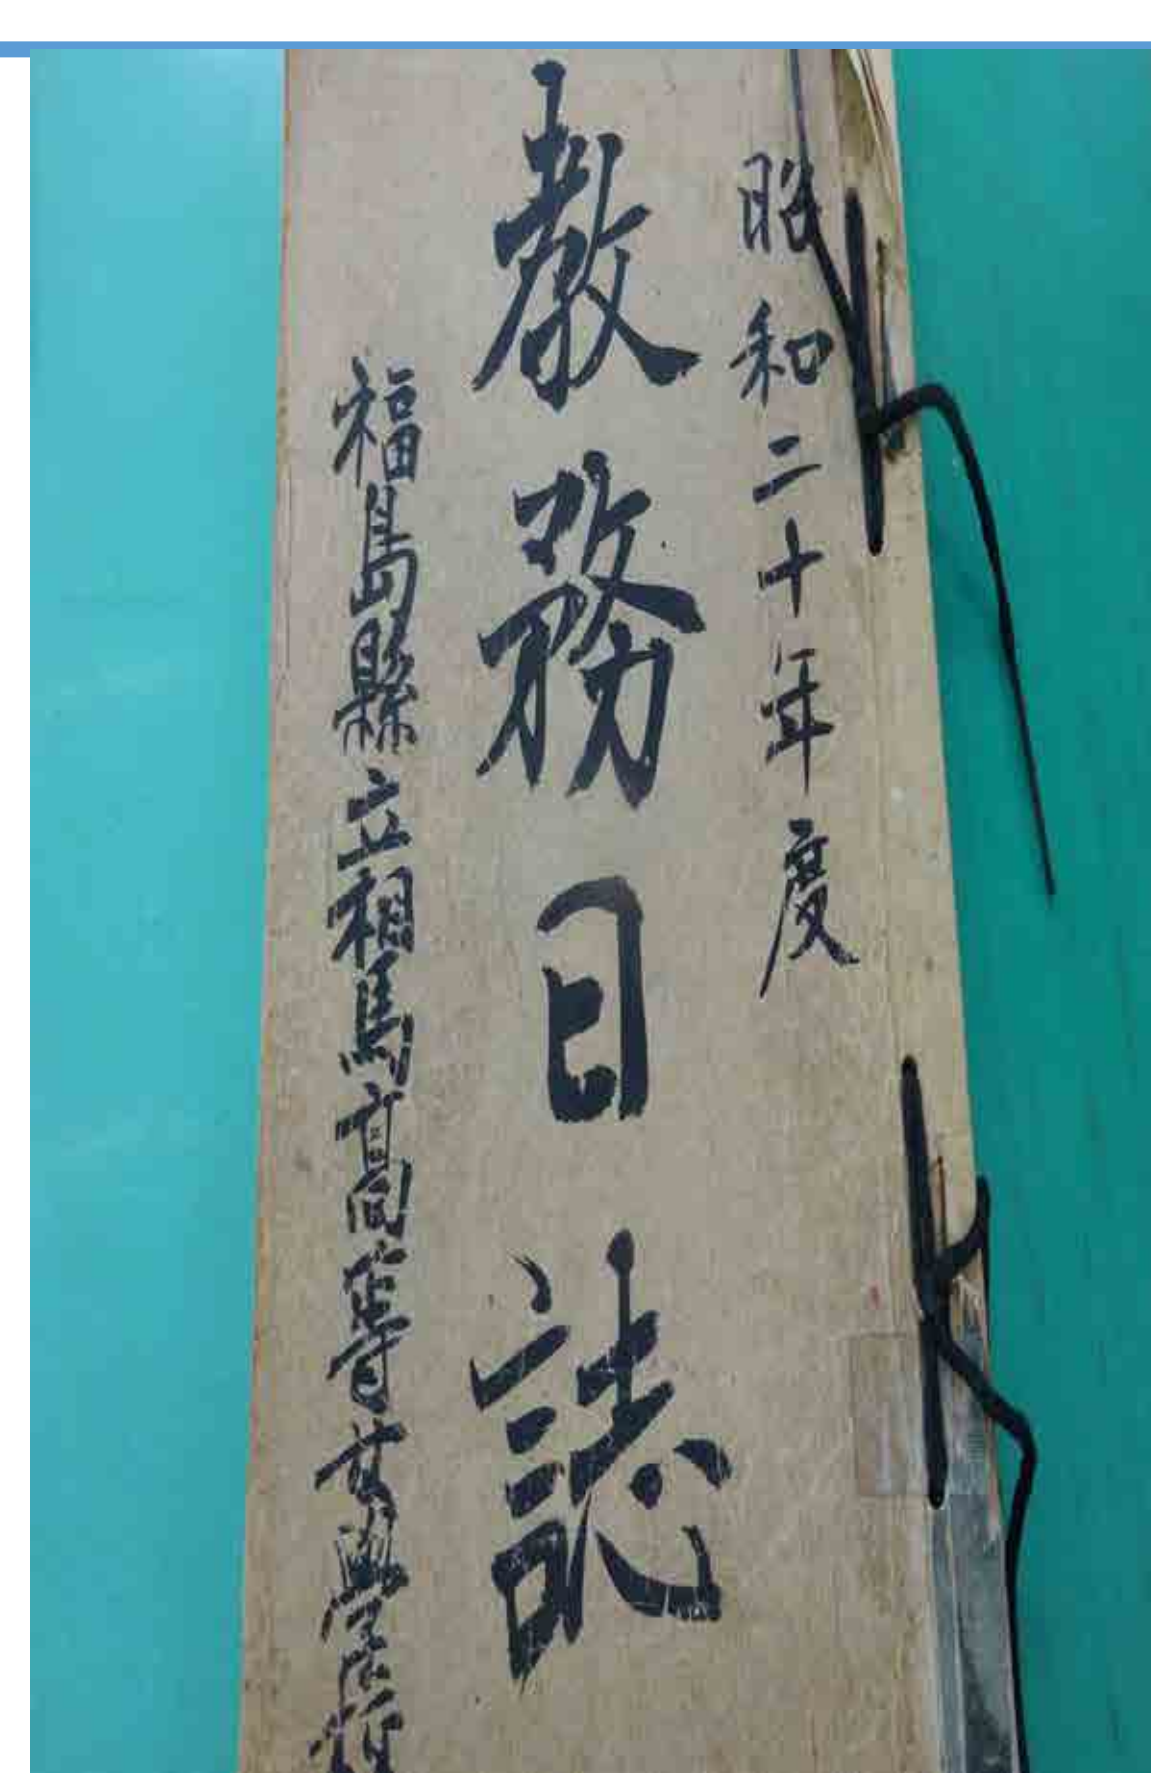 昭和二十年度
教務日誌
福島縣立相馬高等女學校